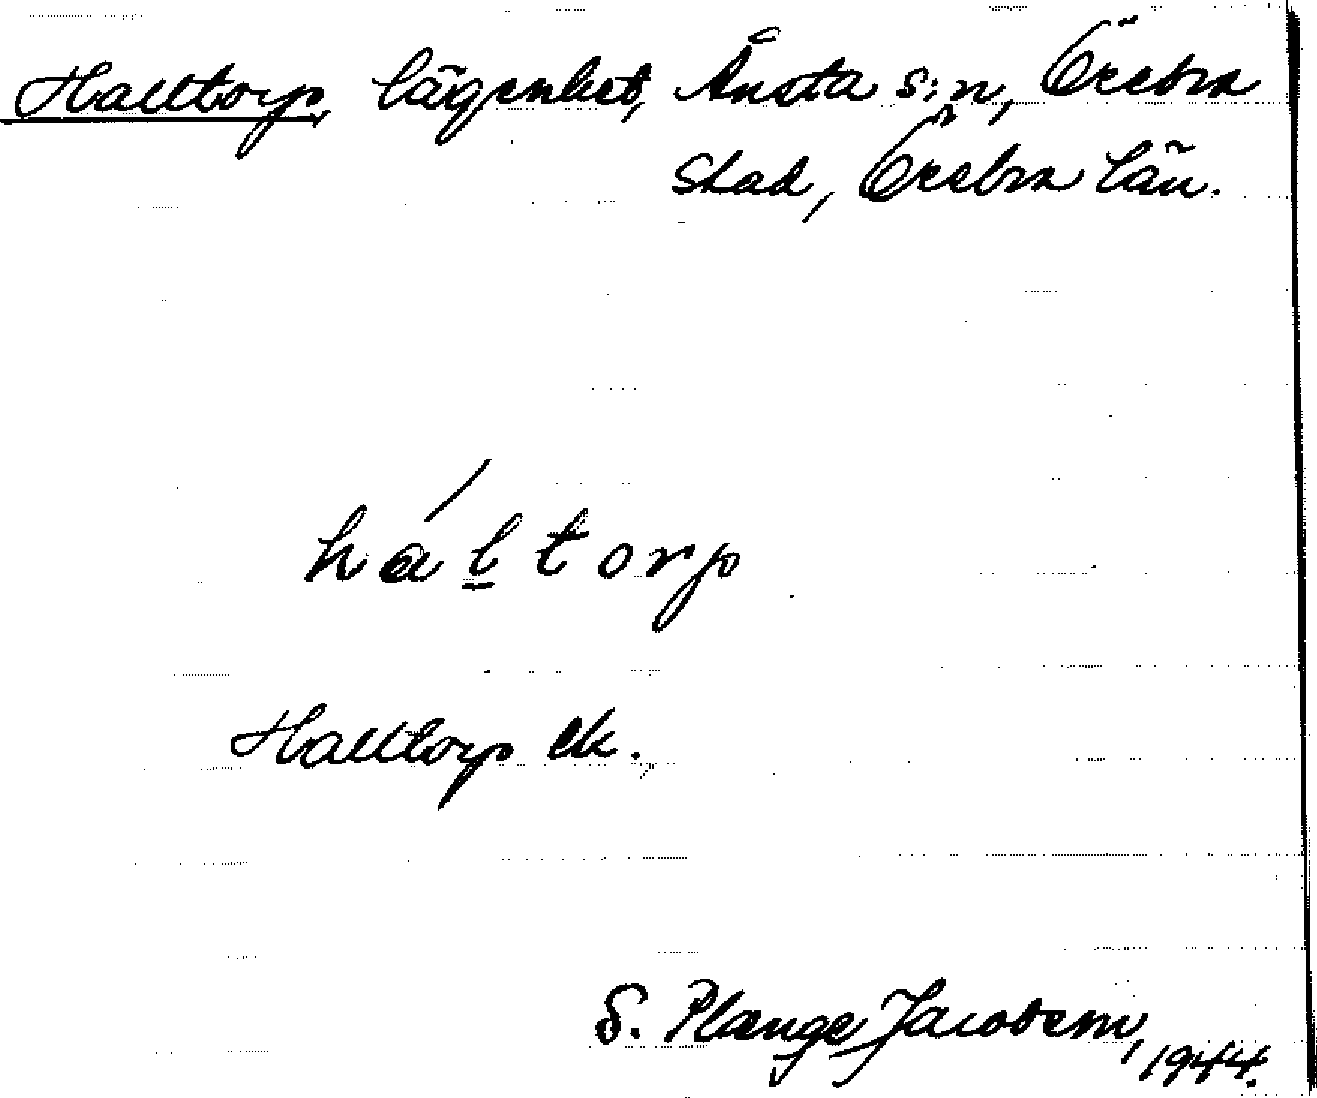 Halltorp, lägenhet, Ånsta s:n, Örebro
stad, Örebro län.
háltorp
Halltorp ek.
S. Plænge Jacobson, 1944.